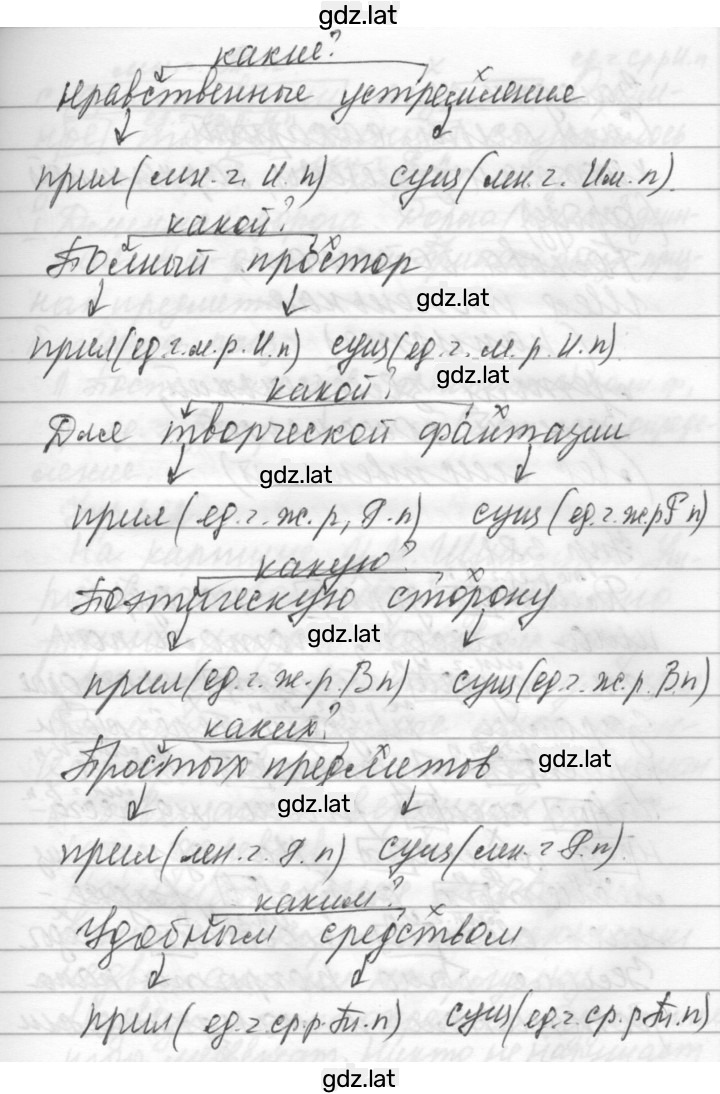 gdz.lat
какие?
х
Нравственные устремления
прил(мн.ч. И.п) сущ(мн.ч. Им.п).
какой?
х
Полный простор
gdz.lat
прил(ед.ч.м.р.И.п) сущ(ед.ч. м.р.И.п).
gdz.lat
какой?
х
Для творческой фантазии
gdz.lat
прил(ед.ч.ж.р, Р.п) сущ(ед.ч.ж.р Р п)
какую?
х
Поэтическую сторону
gdz.lat
прил(ед.ч.ж.р.В п) сущ(ед.ч.ж.р.В.п)
каких?
х
Простых предметов
gdz.lat
gdz.lat
прил(мн.ч.Р.п) сущ(мн.ч Р.п).
каким?
х
Удобным средством
прил(ед.ч ср.р.Тв.п) сущ(ед.ч.ср.р Тв.п)
gdz.lat